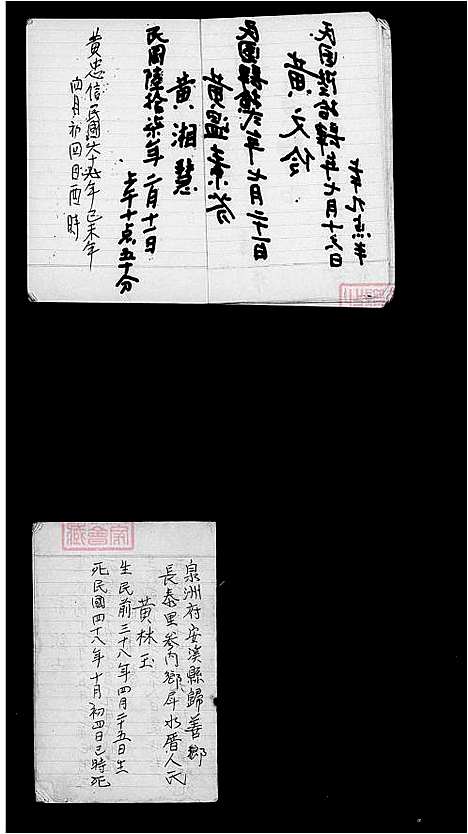 民国陸拾肆年七月十六日
上午九点半
黄文伶
民国肆拾弍年七月二十一日
黄温素芬
黄湘慧
民国陸拾柒年二月十二日
上午十点五十分
黄忠信民國六十八年己未年
四月初四日酉時
泉洲府安溪縣歸善鄉
長泰里参内鄉戽水厝人氏
黄林玉
生民前三十八年四月二十五日生
死民國四十八年十月初四日己時死